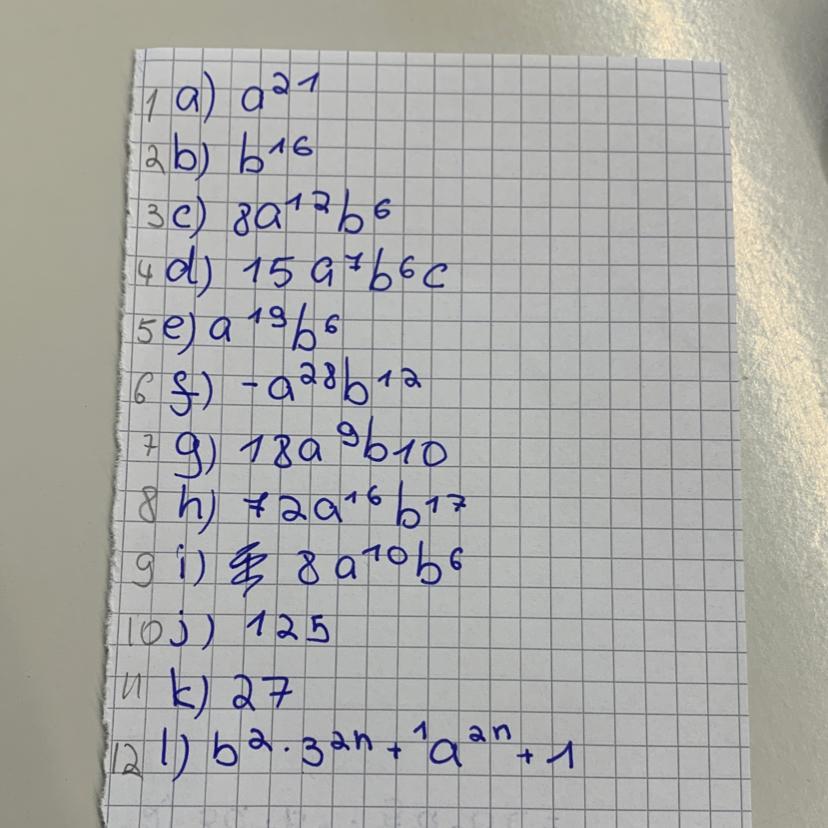 1 a) a²¹
2 b) b¹⁶
3 c) 8a¹²b⁶
4 d) 15 a⁷b⁶c
5 e) a¹⁹b⁶
6 f) -a²⁸b¹²
7 g) 18a⁹b10
8 h) 72a¹⁶b¹⁷
9 i) 8a¹⁰b⁶
10 j) 125
11 k) 27
12 l) b²·3²ⁿ⁺¹a²ⁿ+1